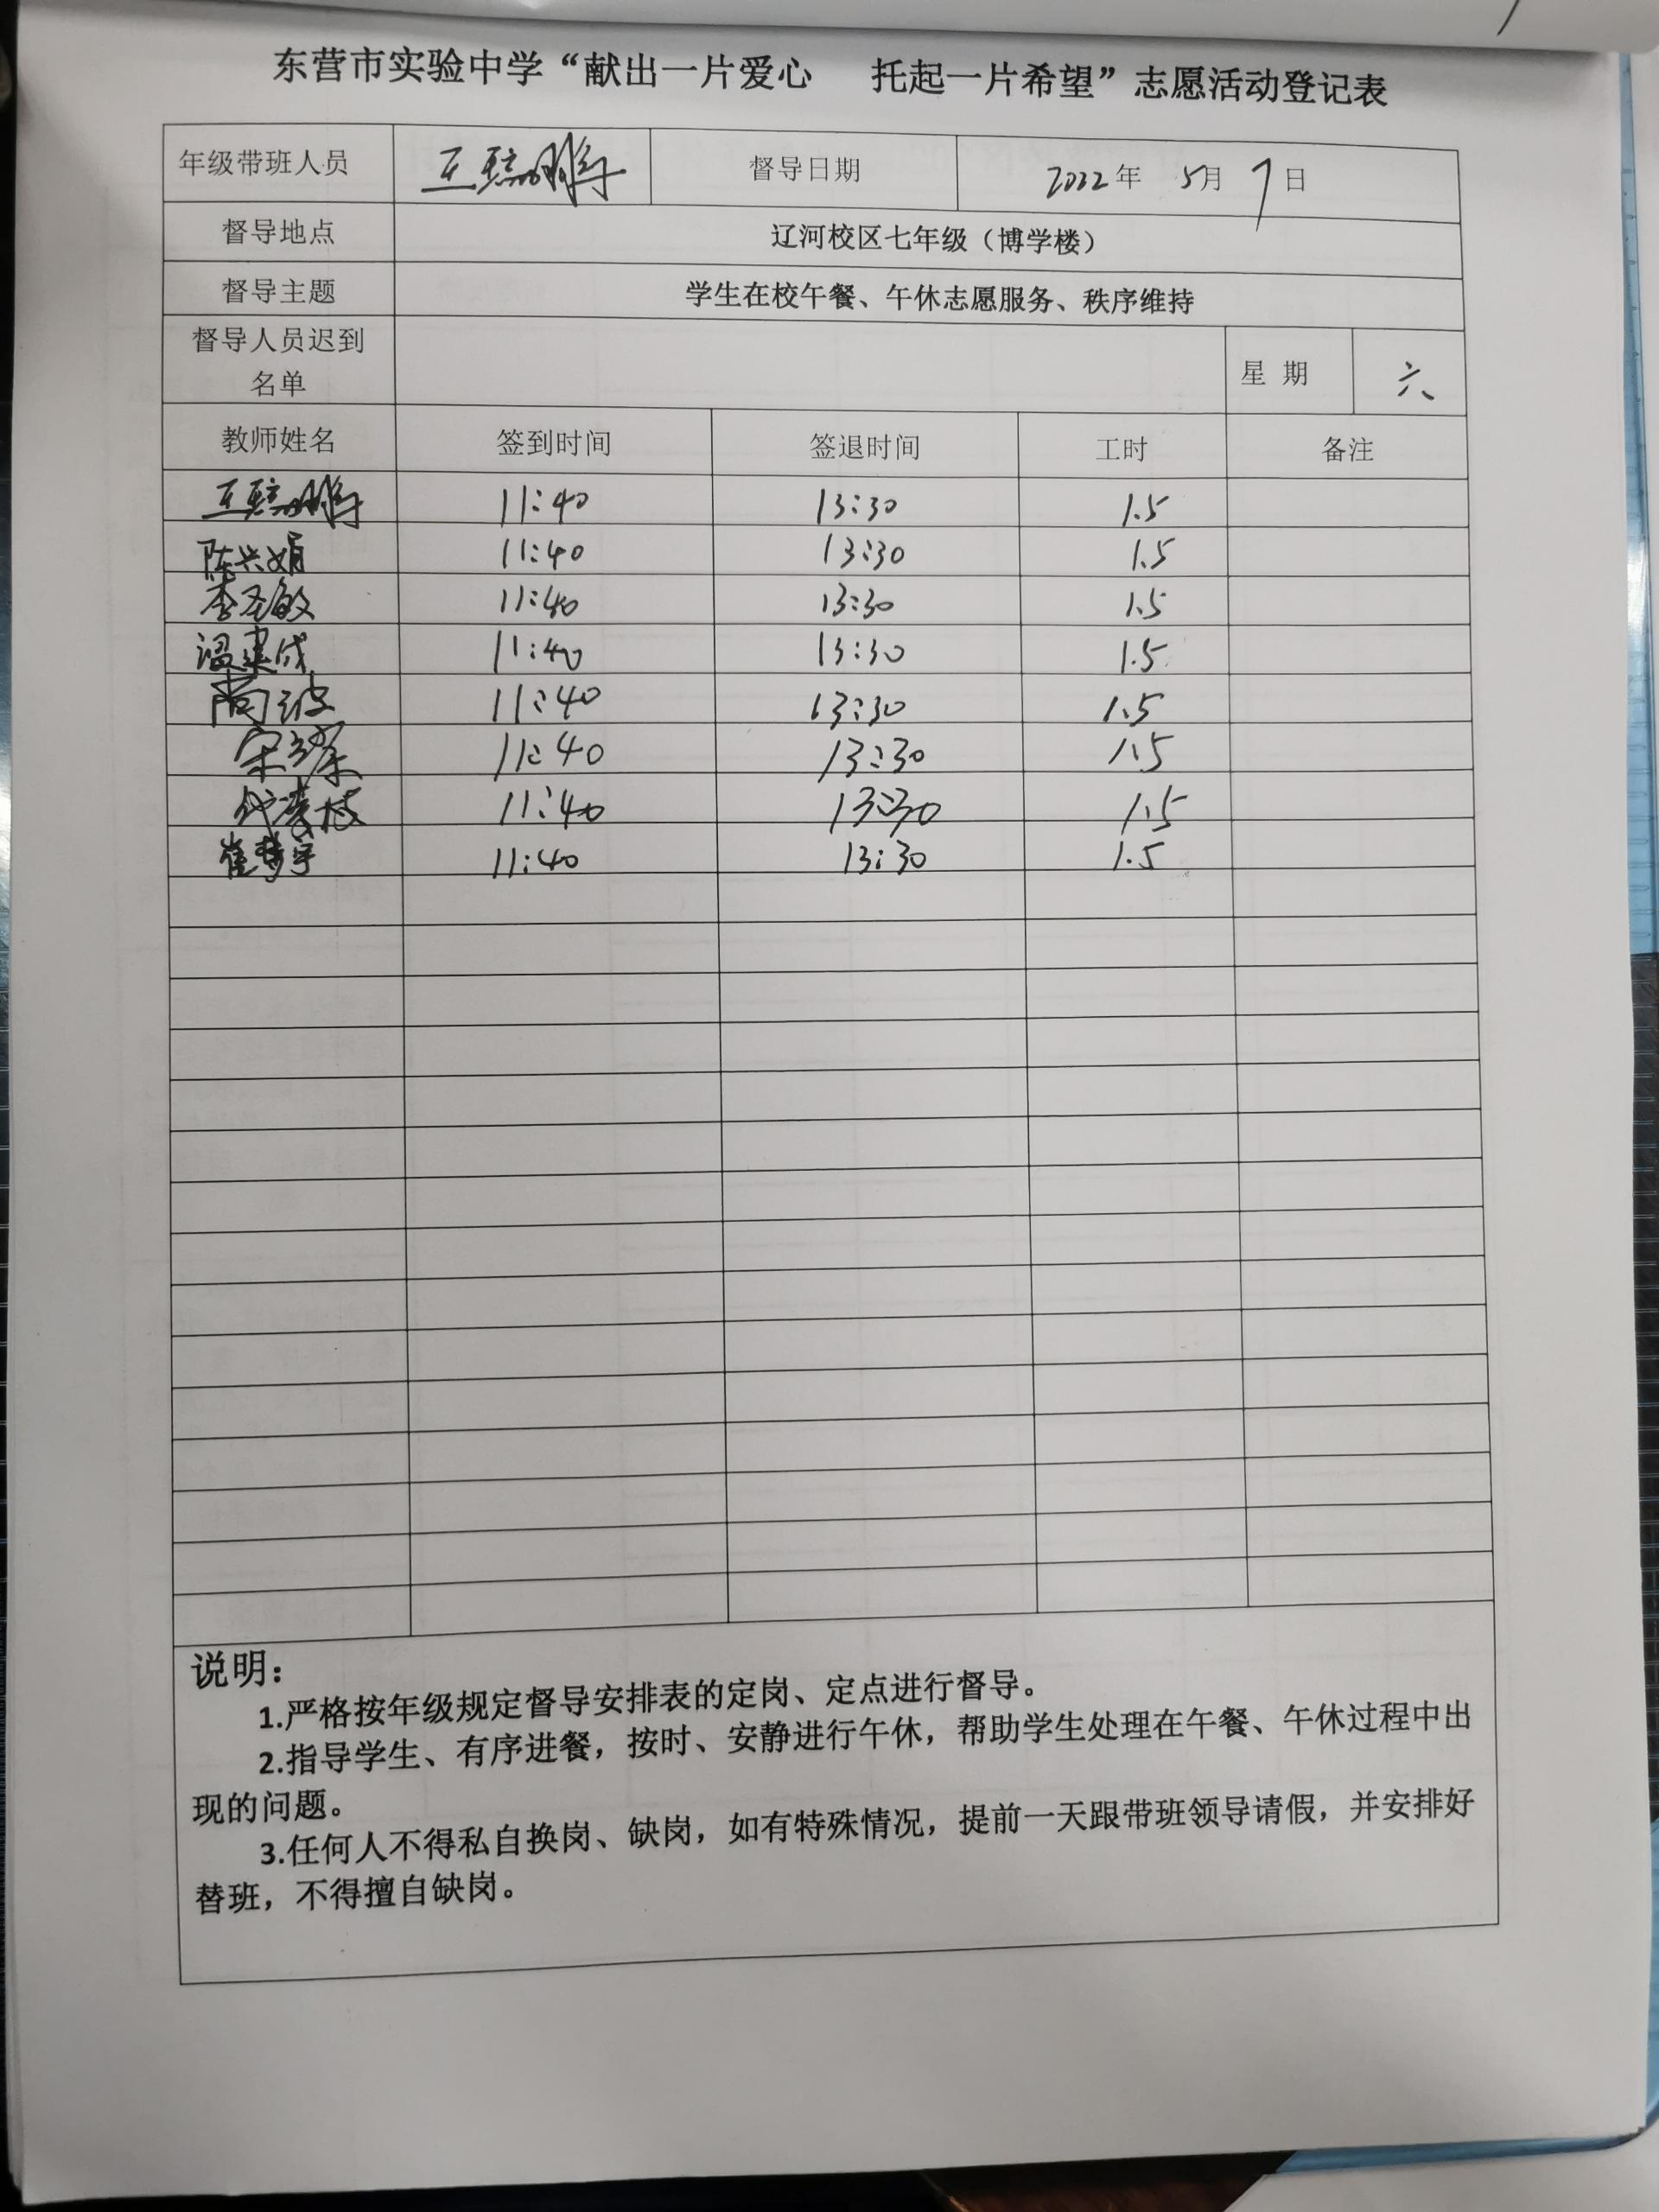 东营市实验中学“献出一片爱心 托起一片希望”志愿活动登记表
年级带班人员 督导日期 2022年 5月 7日
督导地点 辽河校区七年级（博学楼）
督导主题 学生在校午餐、午休志愿服务、秩序维持
督导人员迟到名单 星 期 六
教师姓名 签到时间 签退时间 工时 备注
11:40 13:30 1.5
陈兴娟 11:40 13:30 1.5
李圣敏 11:40 13:30 1.5
温建成 11:40 13:30 1.5
尚波 11:40 13:30 1.5
11:40 13:30 1.5
11:40 13:30 1.5
崔梦宇 11:40 13:30 1.5
说明：
1.严格按年级规定督导安排表的定岗、定点进行督导。
2.指导学生、有序进餐，按时、安静进行午休，帮助学生处理在午餐、午休过程中出
现的问题。
3.任何人不得私自换岗、缺岗，如有特殊情况，提前一天跟带班领导请假，并安排好
替班，不得擅自缺岗。